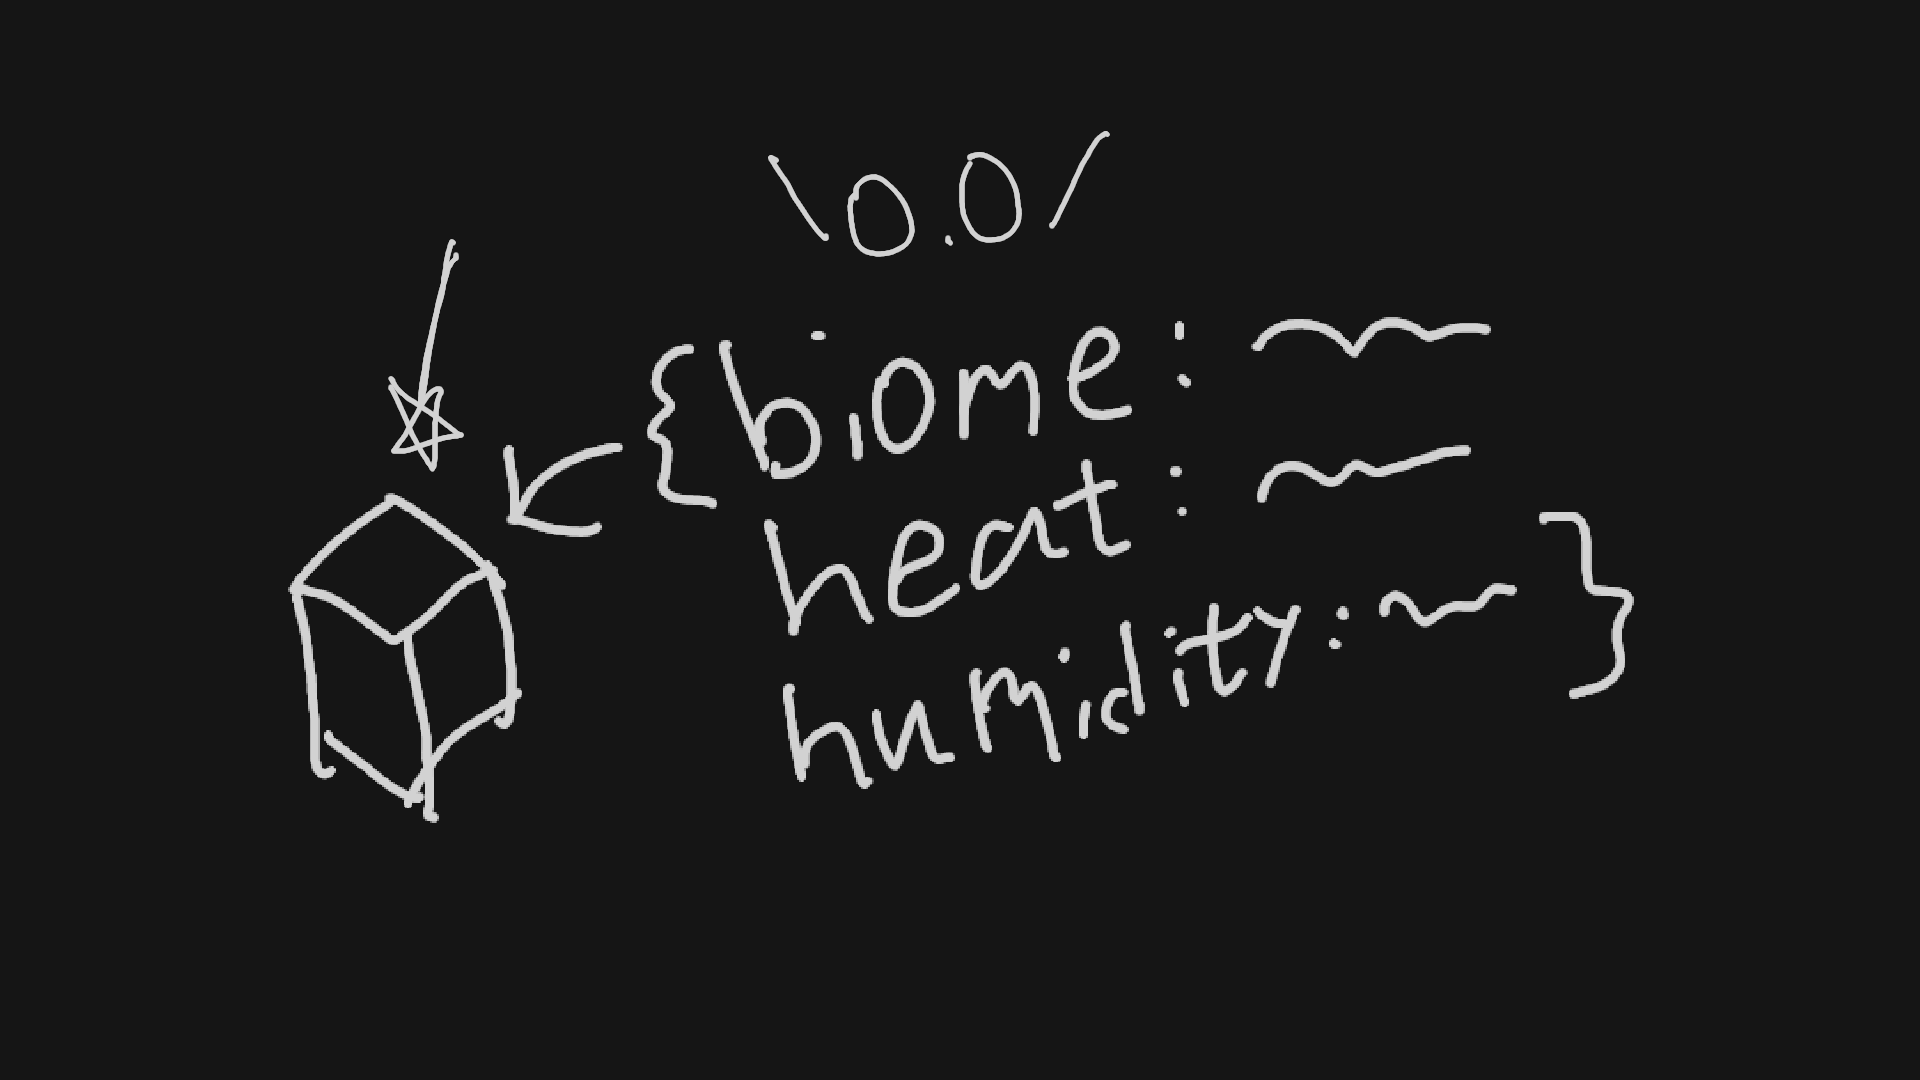 \0.0/
{biome: ~
heat: ~
humidity: ~}